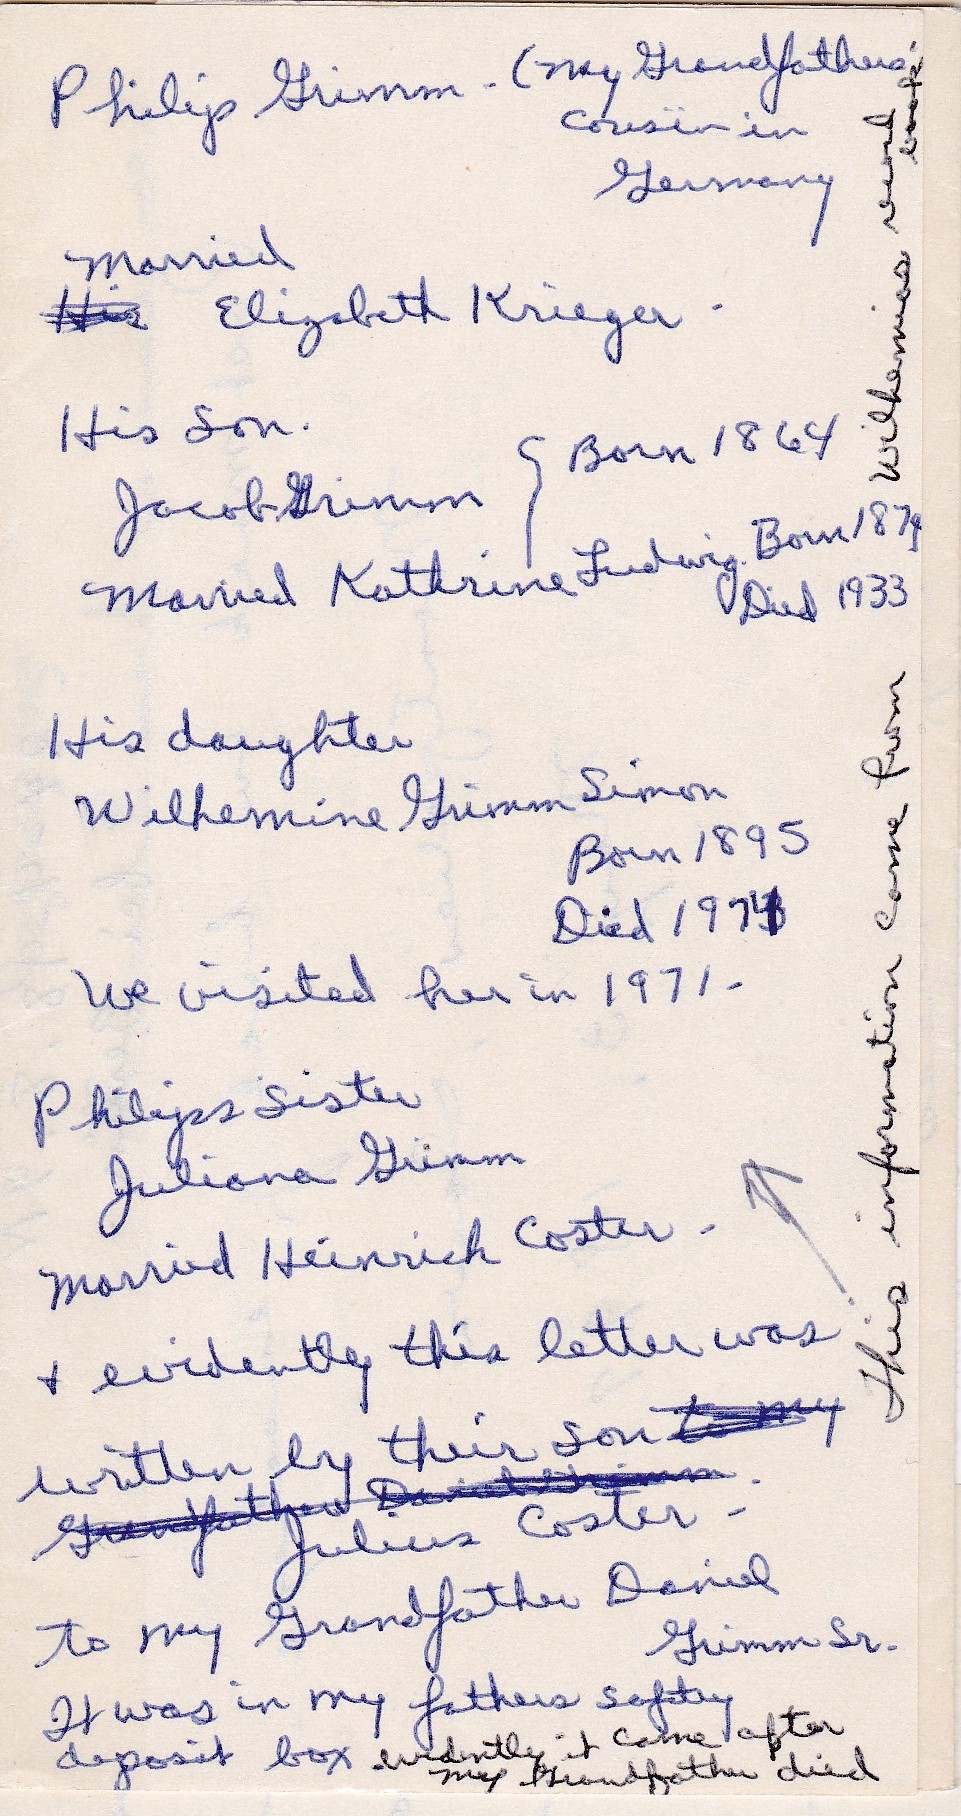 Philip Grimm - (my Grandfathers
cousin in
Germany
married
His Elizabeth Krieger -
His son.
Jacob Grimm { Born 1864
Married Kathrine Ludwig. Born 1874
Died 1933
His daughter
Wilhemine Grimm Simon
Born 1895
Died 1974
We visited her in 1971 -
Philips sister
Juliana Grimm
Married Heinrich Coster -
+ evidently this letter was
written by their son to my
Grandfather Daniel Grimm.
Julius Coster -
to my Grandfather Daniel
Grimm Sr.
It was in my fathers safty
deposit box evidently it came after
my Grandfather died
This information came from Wilhemias record
book